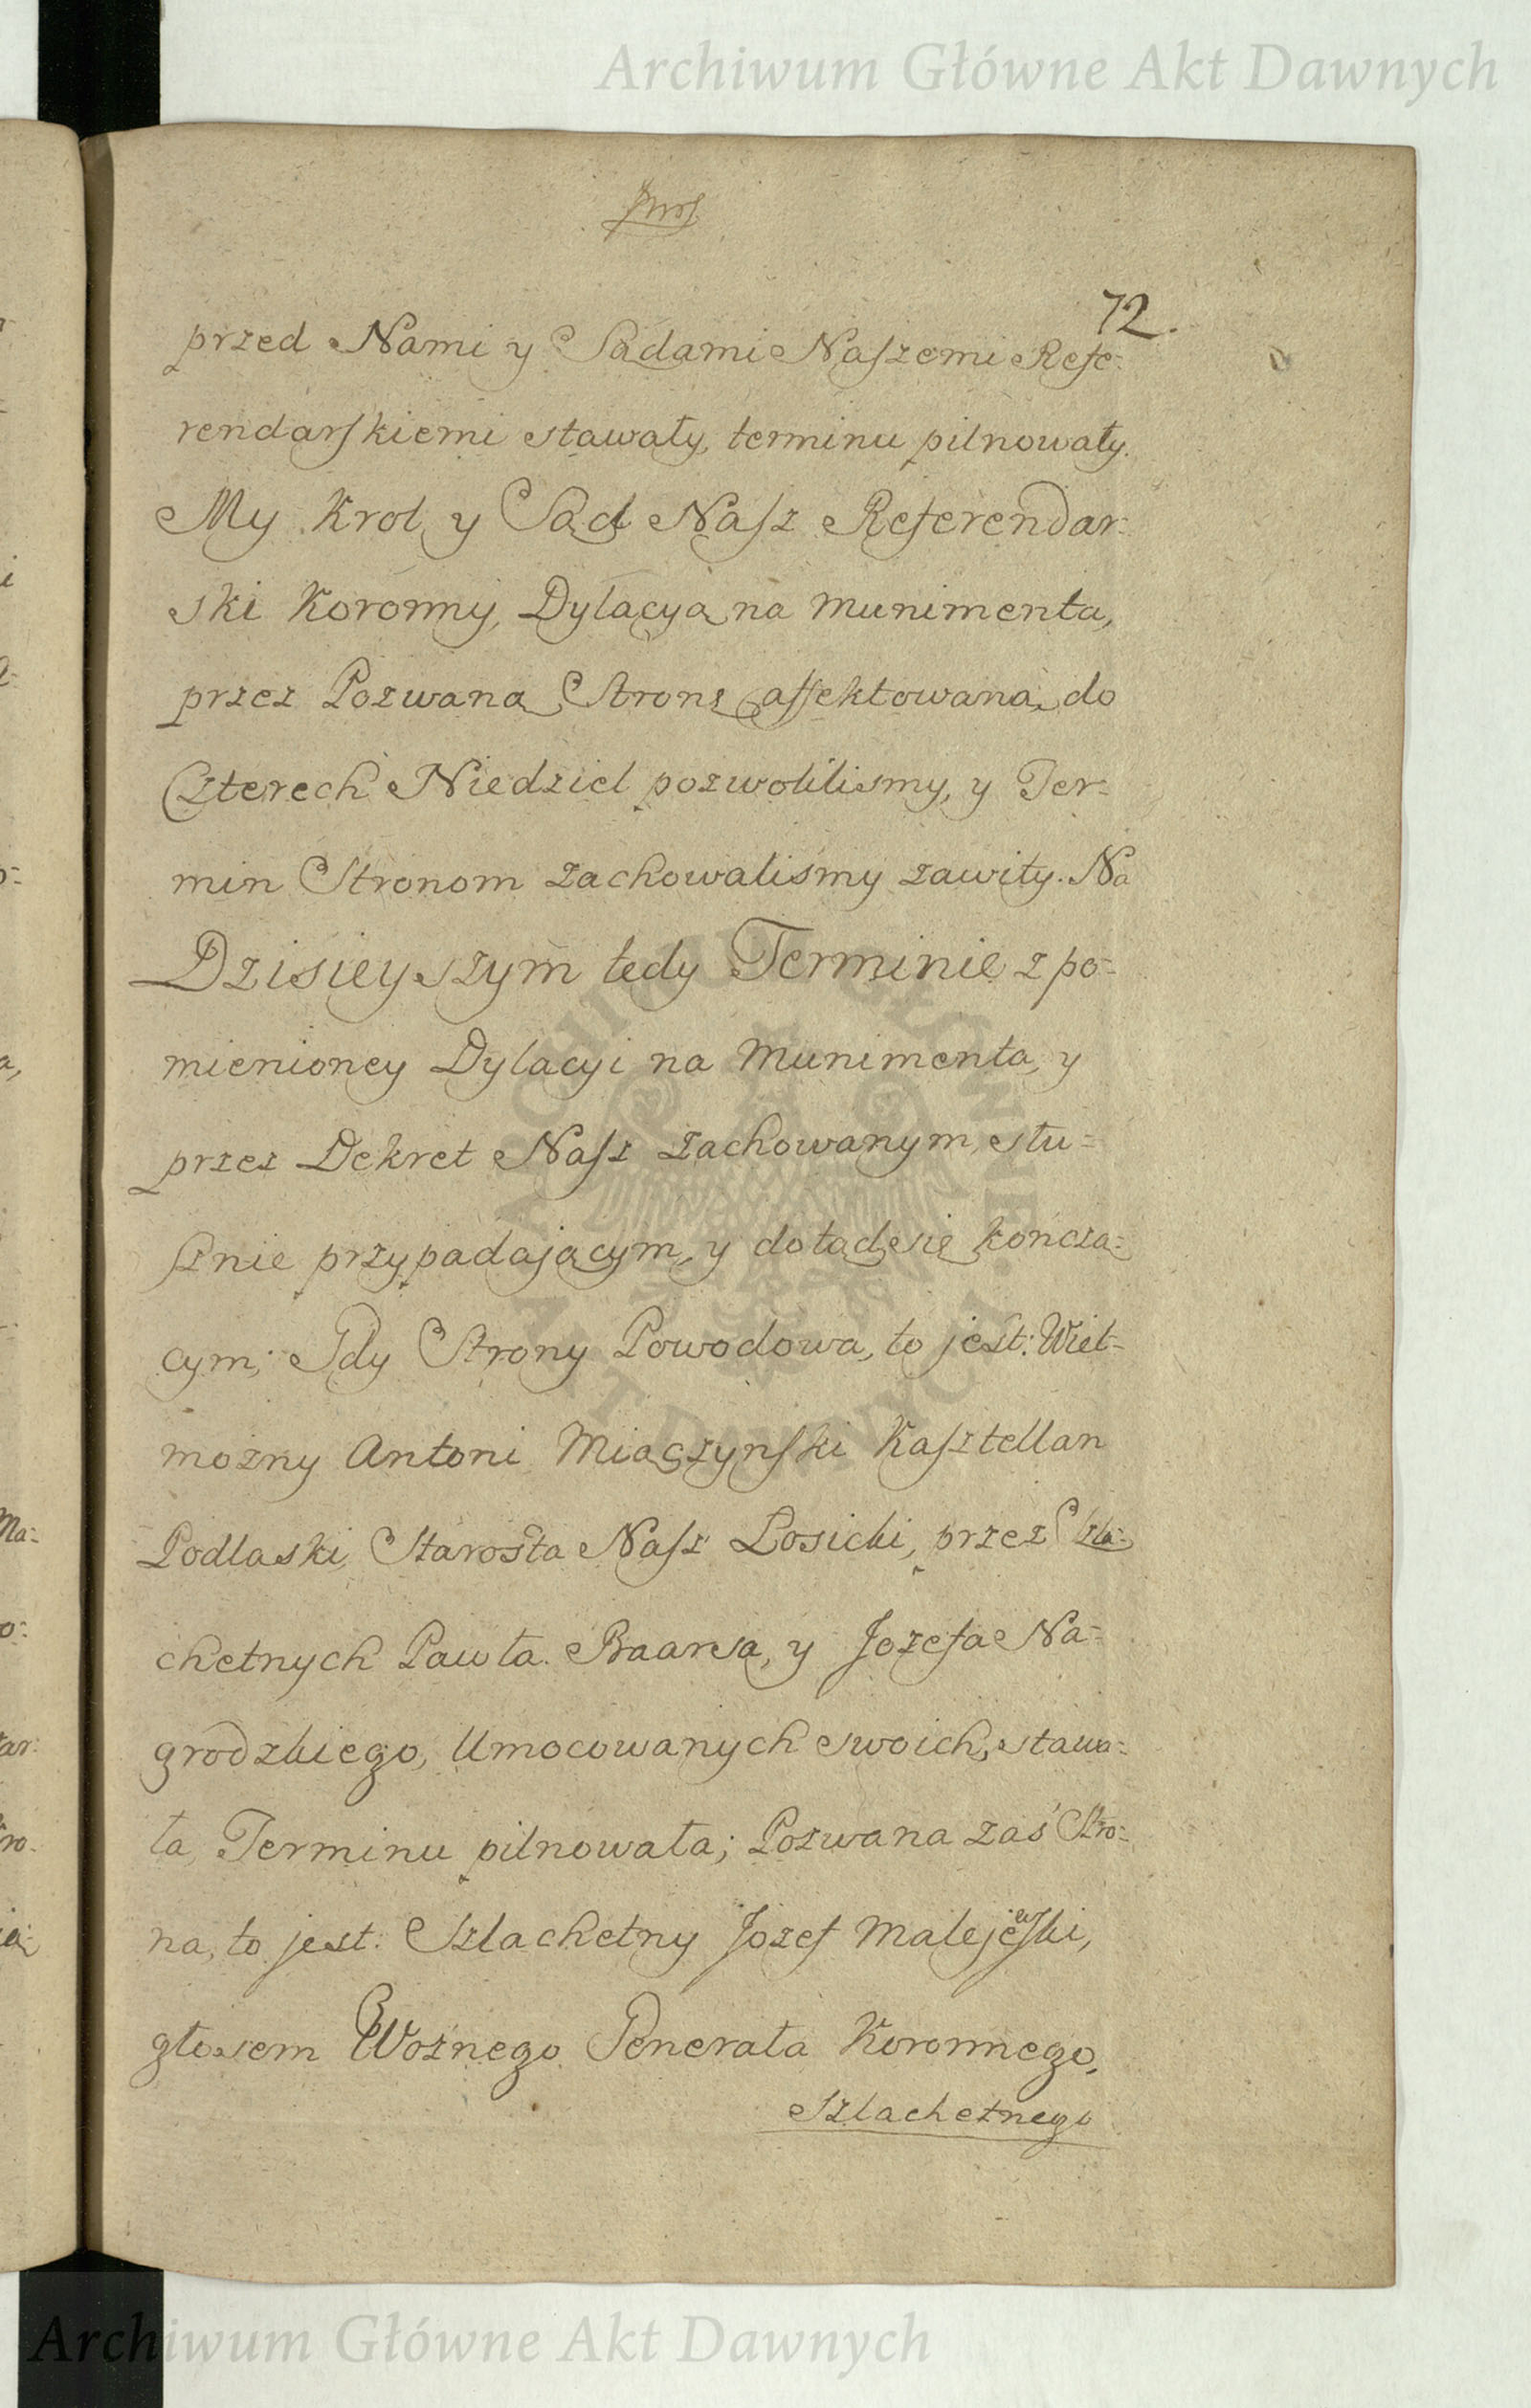 Archiwum Główne Akt Dawnych
72.
przed Nami y Sądami Naszemi Refe=
rendarskiemi stawały, terminu pilnowały.
My Krol y Sąd Nasz Referendar=
ski Koronny, Dylacyą na Munimenta,
przez Pozwaną Stronę affektowaną, do
Czterech Niedziel pozwolilismy, y Ter=
min Stronom zachowaliśmy zawity. Na
Dzisieyszym tedy Terminie z po=
mienioney Dylacyi na Munimenta, y
przez Dekret Nasz zachowanym, słu=
sznie przypadającym, y dotąd się kończą=
cym; Gdy Strony Powodowa, to jest: Wiel=
możny Antoni Miączynski Kasztellan
Podlaski, Starosta Nasz Łosicki, przez Szla=
chetnych Pawła Baarsa, y Jozefa Na=
grodzkiego, Umocowanych swoich, stawa=
ła, Terminu pilnowała; Pozwana zaś Stro=
na, to jest: Szlachetny Jozef Malejewski,
głosem Woźnego Generała Koronnego,
Szlachetnego
ARCHIWUM GŁÓWNE AKT DAWNYCH
Archiwum Główne Akt Dawnych